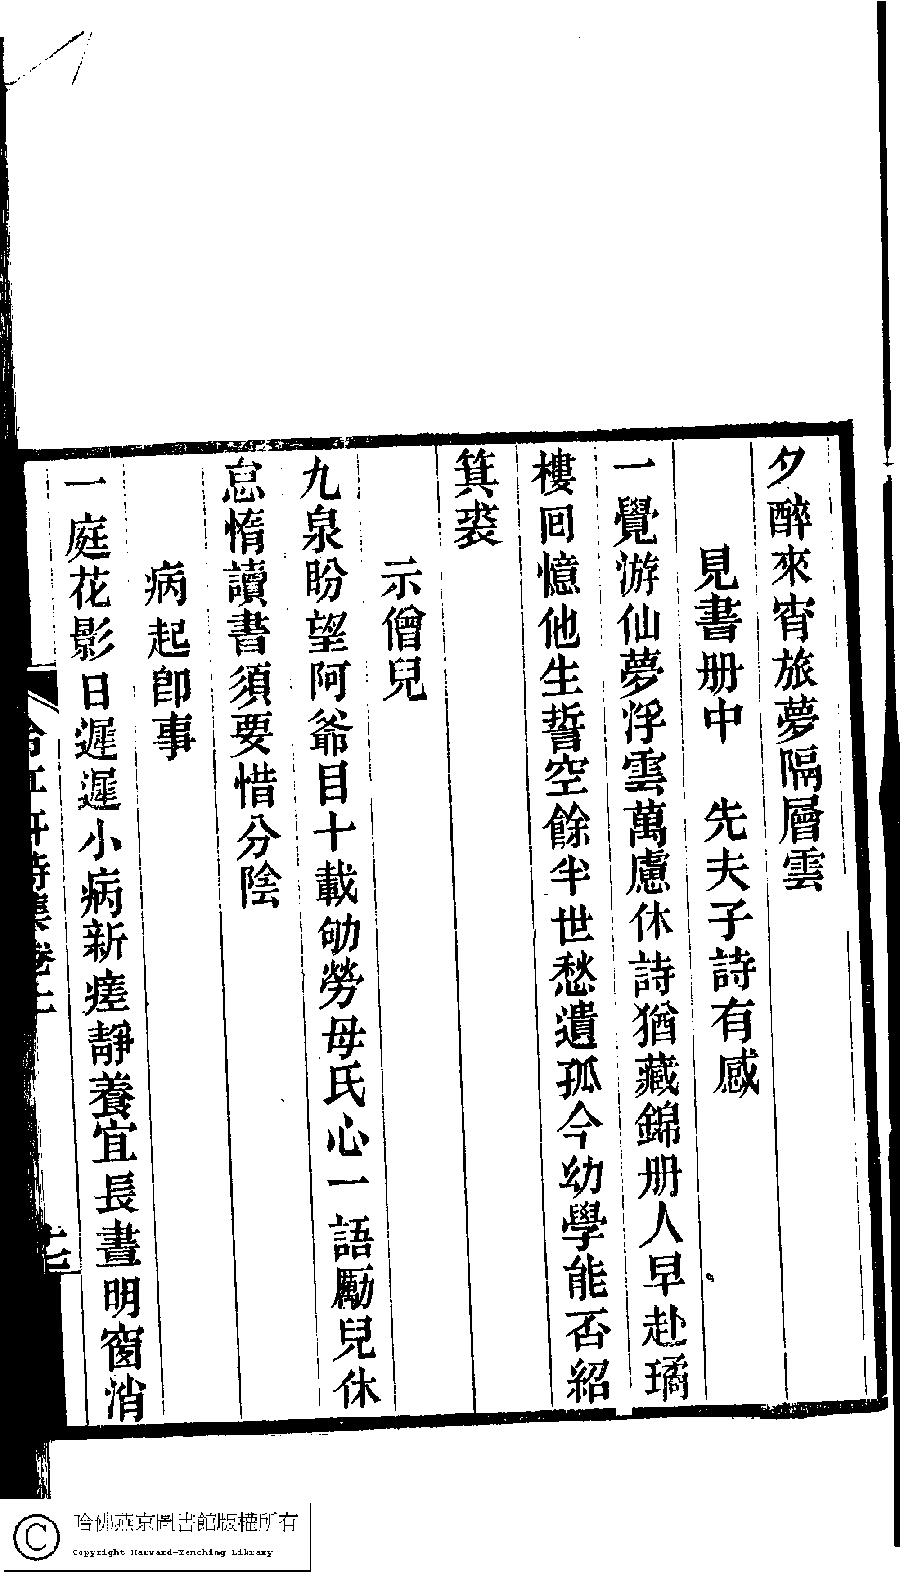 夕醉來宵旅夢隔層雲
見書册中　先夫子詩有感
一覺游仙夢浮雲萬慮休詩猶藏錦册人早赴璚
樓回憶他生誓空餘半世愁遺孤今幼學能否紹
箕裘
示僧兒
九泉盼望阿爺目十載劬勞母氏心一語勵兒休
怠惰讀書須要惜分陰
病起卽事
一庭花影日遲遲小病新瘥靜養宜長晝明窗消
詩集卷上
十七
哈佛燕京圖書館版權所有
Copyright Harvard-Yenching Library